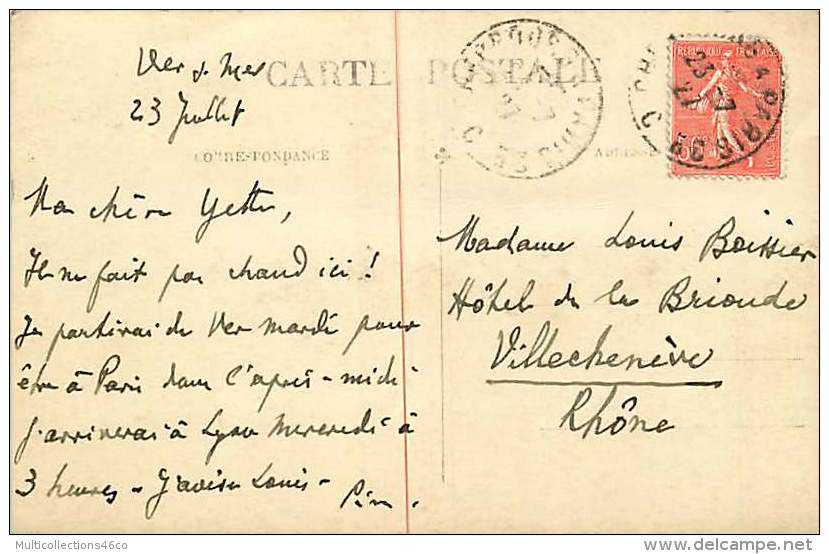 Ver s. Mer
23 Juillet
CARTE POSTALE
CORRESPONDANCE
ADRESSE
Ma chère Yette,
Il ne fait pas chaud ici !
Je partirai de Ver mardi pour
être à Paris dans l'après-midi
j'arriverai à Lyon Mercredi à
3 heures - J'avise Louis -
Madame Louis Boissier
Hôtel de la Brionde
Villechenève
Rhône
REPUBLIQUE FRANÇAISE
PARIS
23 -7
27
Multicollections46co
delcampe.net